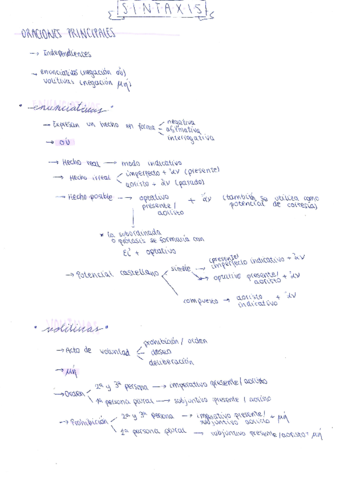 SINTAXIS
ORACIONES PRINCIPALES
→ Independientes
→ enunciativas (negación οὐ)
volitivas (negación μή)
• enunciativas •
→ Expresan un hecho en forma
negativa
afirmativa
interrogativa
→ οὐ
→ Hecho real → modo indicativo
→ Hecho irreal
imperfecto + ἄν (presente)
aoristo + ἄν (pasado)
→ Hecho posible → optativo presente / aoristo + ἄν (también se utiliza como potencial de cortesía)
* la subordinada o prótasis se formaría con
Εἰ + optativo
→ Potencial castellano
simple
(presente) imperfecto indicativo + ἄν
optativo presente / aoristo + ἄν
compuesto → aoristo indicativo + ἄν
• volitivas •
→ Acto de voluntad
prohibición / orden
deseo
deliberación
→ μή
→ Orden
2ª y 3ª persona → imperativo presente / aoristo
1ª persona plural → subjuntivo presente / aoristo
→ Prohibición
2ª y 3ª persona → imperativo presente / subjuntivo aoristo + μή
1ª persona plural → subjuntivo presente / aoristo + μή